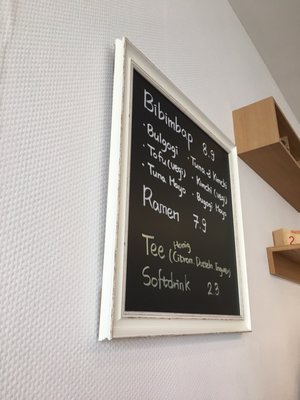 Bibimbap 8.9
· Bulgogi · Tuna & Kimchi
· Tofu (vegi) · Kimchi (vegi)
· Tuna Mayo · Bugogi Mayo
Ramen 7.9
Honig
Tee (Citron, Datteln, Ingwer)
Softdrink 2.3